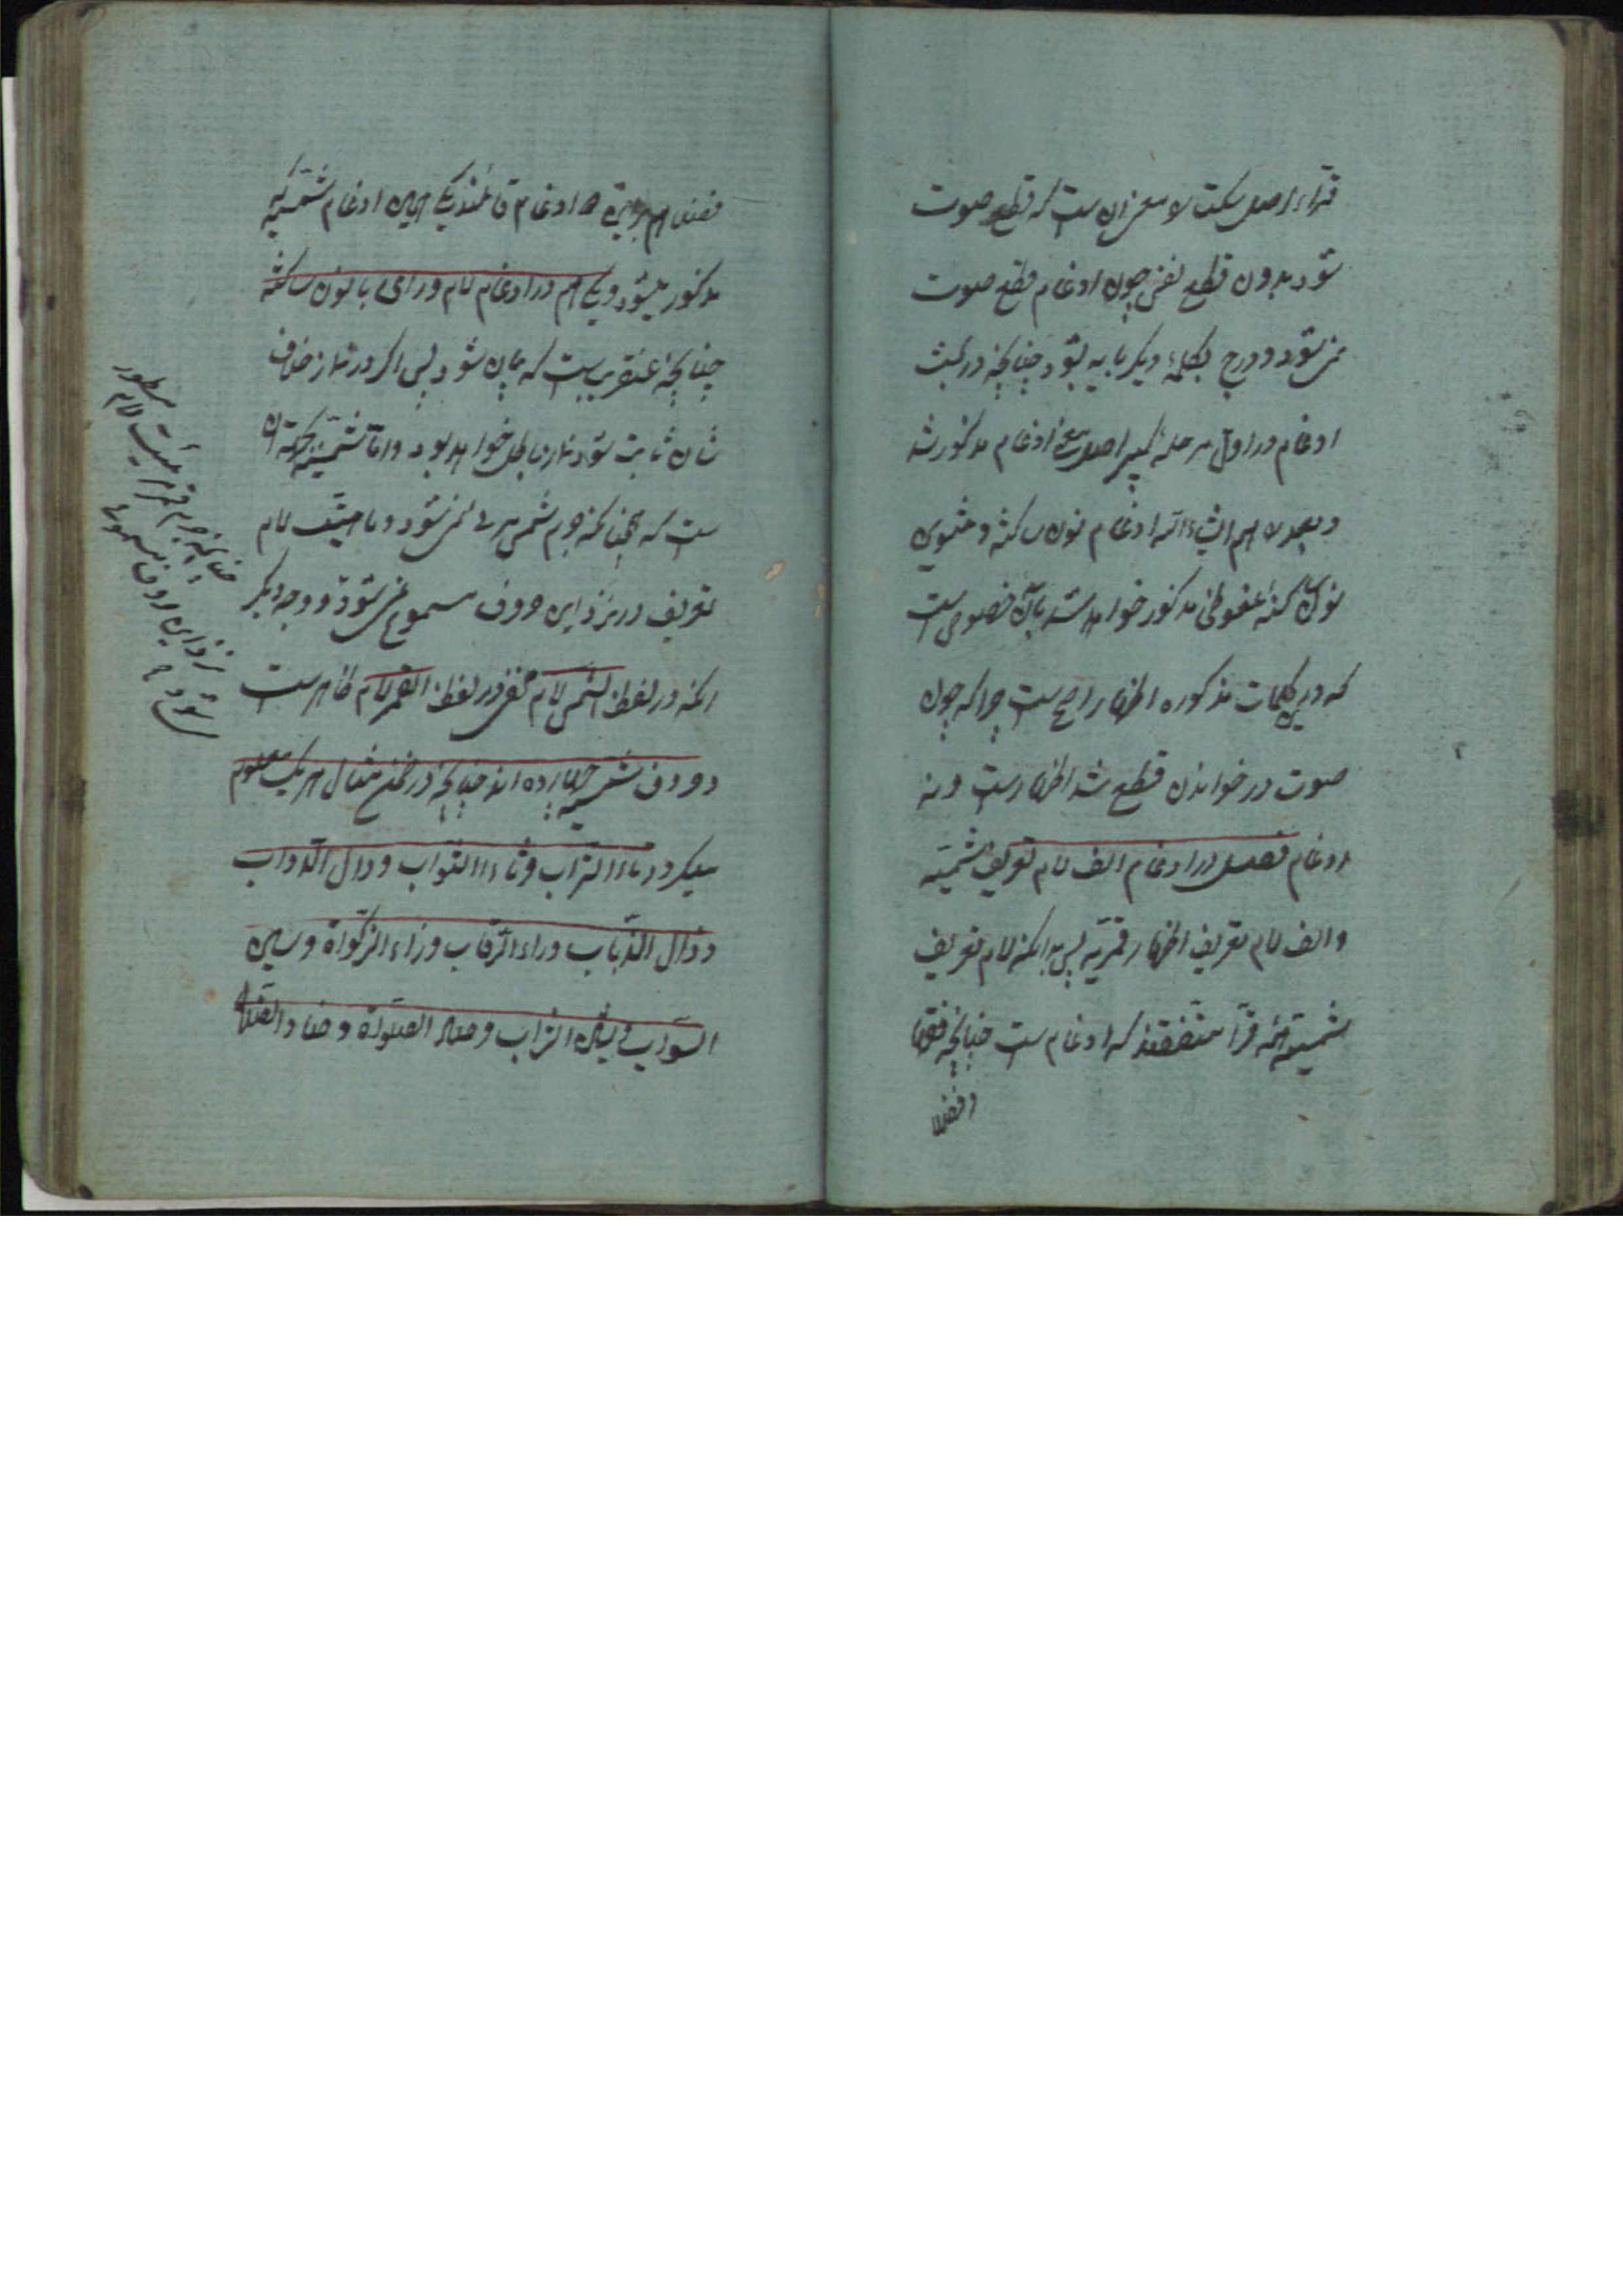 قراء اصل سکت و معنی آن ست که قطع صوت
شود بدون قطع نفس چون ادغام قطع صوت
می شود و درج بکلمهٔ دیگر باید بشود چنانچه در بحث
ادغام در اول مرحله کبیر اصل معنی ادغام مذکور شد
و بعد هم انشاءالله ادغام نون ساکنه و تنوین
نون ساکنه ملفوظی مذکور خواهد شد بآن خصوص ست
که درین کلمات مذکوره اظهار راجح ست چرا که چون
صوت در خواندن قطع شد اظهار ست و نه
ادغام فصل در ادغام الف لام تعریف شمسیه
و الف لام تعریف اظهار قمریه پس بدانکه لام تعریف
شمسیه همه قرآء متفقند که ادغام ست چنانچه فقها
و فضلا
فضلا هم ادغام قائلند یکی همین ادغام شمسیه
مذکور میشود و یکی هم در ادغام لام و رای با نون ساکنه
چنانچه عنقریب ست که بیان شود پس اگر در نماز خلاف
شان ثابت شود نماز باطل خواهد بود و اما شمسیه بجهة آن
ست که همچنانکه جرم شمس مرئی نمی شود و ماهیت لام
تعریف در نزد این حروف مسموع نمی شود و وجه دیگر
آنکه در لفظ الشمس لام مخفی و در لفظ القمر لام ظاهر ست
و حروف شمسیه چهارده اند چنانچه در ضمن مثال هر یک معلوم
میکردد تاء التراب و ثاء الثواب و دال الدواب
و ذال الذباب و راء الرقاب و زاء الزکوة و سین
السراب و شین الشراب و صاد الصلوة و ضاد الضلالة
چنانکه جرم قمر مرئیست لام مسطور
نزد این حروف مسموع
شود